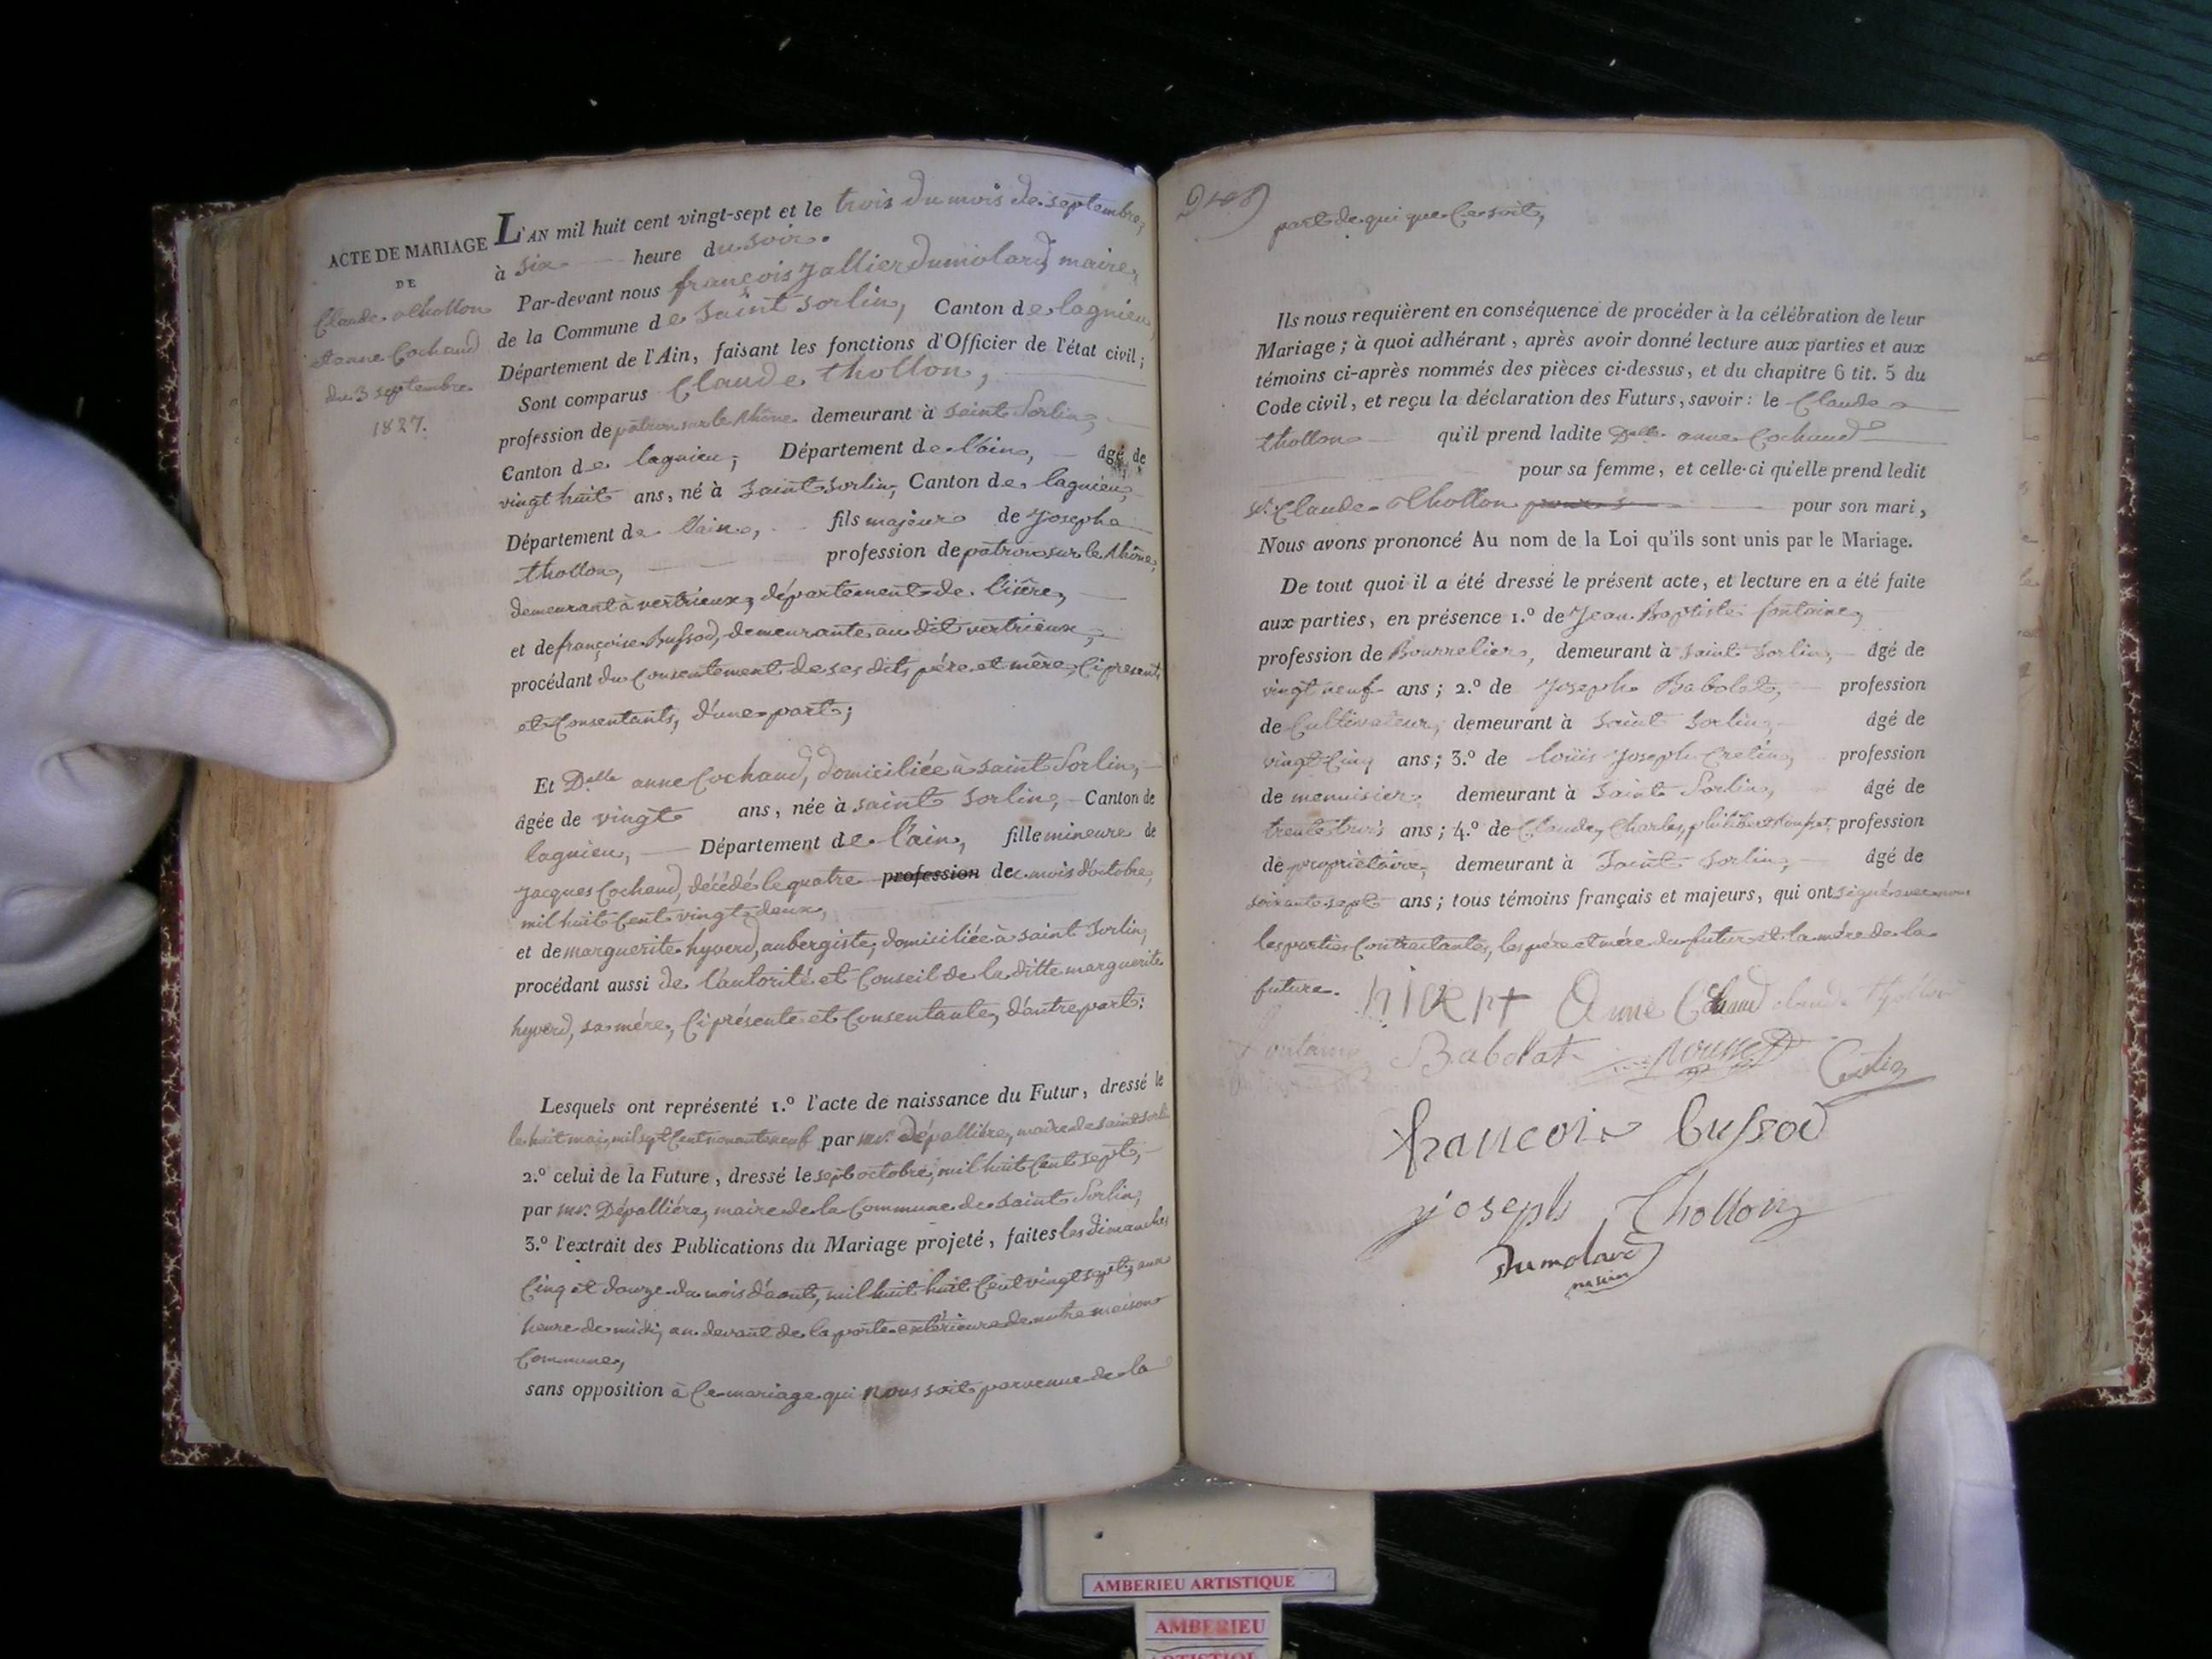 ACTE DE MARIAGE
DE
Claude Thollon
Anne Cochaud
du 3 septembre
1827.
L'AN mil huit cent vingt-sept et le trois du mois de septembre,
à six heure du soir.
Par-devant nous françois Jallier Dumolard, maire,
de la Commune de Saint Sorlin, Canton de lagnieu,
Département de l'Ain, faisant les fonctions d'Officier de l'état civil;
Sont comparus Claude thollon,
profession de patron sur le Rhône demeurant à saint Sorlin,
Canton de lagnieu, Département de l'ain, âgé de
vingt huit ans, né à Saint Sorlin, Canton de lagnieu,
Département de l'ain, fils majeur de Joseph
thollon, profession de patron sur le Rhône,
demeurant à vertrieux, département de l'isère,
et de françoise Bussod, demeurante au dit vertrieux,
procédant du Consentement de ses dits père et mère, Ci présents
et Consentants, d'une part;
Et Delle anne Cochaud, domiciliée à saint Sorlin,
âgée de vingt ans, née à saint Sorlin, Canton de
lagnieu, Département de l'ain, fille mineure de
Jacques Cochaud, décédé le quatre profession de mois d'octobre,
mil huit Cent vingt deux,
et de marguerite hyverd, aubergiste, domiciliée à saint Sorlin,
procédant aussi de l'autorité et Conseil de la ditte marguerite
hyverd, sa mére, Ci présente et Consentante, d'autre part:
Lesquels ont représenté 1.º l'acte de naissance du Futur, dressé le
le huit mai, mil sept Cent nonante neuf par mr. Dépallière, maire de saint Sorlin
2.º celui de la Future, dressé le sept octobre, mil huit Cent sept,
par mr. Dépallière, maire de la Commune de saint Sorlin,
3.º l'extrait des Publications du Mariage projeté, faites les dimanches
Cinq et douze du mois d'aout, mil huit huit Cent vingt sept, aux
heure de midi, au devant de la porte extérieure de nutre maison
Commune,
sans opposition à Ce mariage qui nous soit parvenue de la
part de qui que Ce soit,
Ils nous requièrent en conséquence de procéder à la célébration de leur
Mariage; à quoi adhérant, après avoir donné lecture aux parties et aux
témoins ci-après nommés des pièces ci-dessus, et du chapitre 6 tit. 5 du
Code civil, et reçu la déclaration des Futurs, savoir: le Claude
thollon qu'il prend ladite Delle anne Cochaud
pour sa femme, et celle-ci qu'elle prend ledit
sr. Claude Thollon pour son mari,
Nous avons prononcé Au nom de la Loi qu'ils sont unis par le Mariage.
De tout quoi il a été dressé le présent acte, et lecture en a été faite
aux parties, en présence 1.º de Jean Baptiste fontaine,
profession de Bourrelier, demeurant à saint Sorlin, âgé de
vingt neuf ans; 2.º de Joseph Babolat, profession
de Cultivateur, demeurant à Saint Sorlin, âgé de
vingt Cinq ans; 3.º de loüis Joseph Cretin, profession
de menuisier, demeurant à Saint Sorlin, âgé de
trente trois ans; 4.º de Claude, Charles, philibert Rousset, profession
de propriétaire, demeurant à Saint Sorlin, âgé de
soixante sept ans; tous témoins français et majeurs, qui ont signé avec nous
les parties Contractantes, les père et mére du futur et la mére de la
future. Anne Cochaud claude Thollon
fontaine Babolat rousset Cretin
francoise bussod
joseph Thollon
Dumolard
maire
AMBERIEU ARTISTIQUE
AMBERIEU
ARTISTIQUE